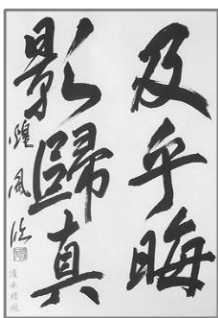 及乎晦
影歸真
煌風臨